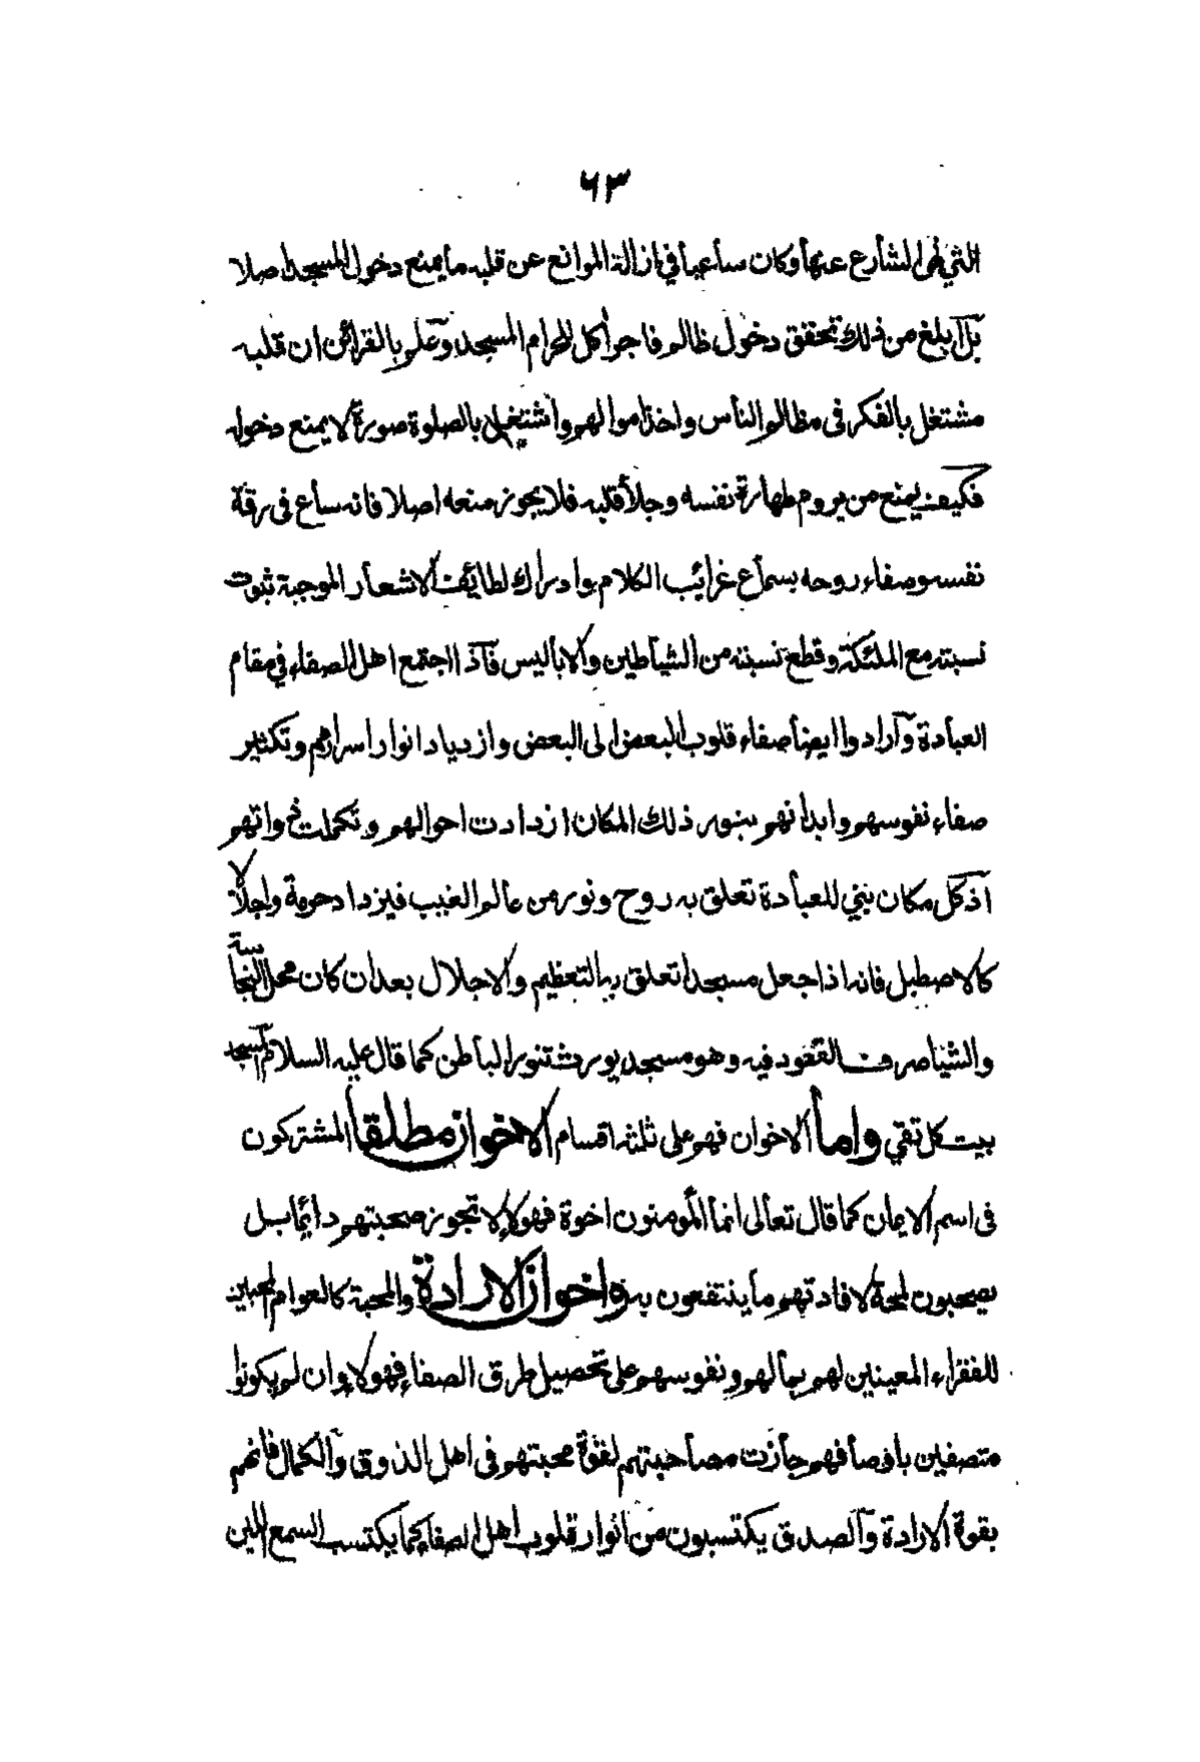 ٦٣
التي نهى الشارع عنها وكان ساعيا في ازالة الموانع عن قلبه ما يمنع دخول المسجد اصلا
بل ابلغ من ذلك تحقق دخول ظالم فاجر اكل الحرام المسجد وعلم بالقرائن ان قلبه
مشتغل بالفكر فى مظالم الناس واخذ اموالهم واشتغل بالصلوة صورة لا يمنع دخوله
فكيف يمنع من يروم طهارة نفسه وجلاء قلبه فلا يجوز منعه اصلا فانه ساع فى رقة
نفسه وصفاء روحه بسماع غرائب الكلام وادراك لطائف الاشعار الموجبة ثبوت
نسبته مع الملئكة وقطع نسبته من الشياطين والاباليس فاذا اجتمع اهل الصفاء في مقام
العبادة وارادوا ايضا صفاء قلوب البعض الى البعض وازدياد انوار اسرارهم وتكثير
صفاء نفوسهم وابدانهم بنور ذلك المكان ازدادت احوالهم وتكملت ذواتهم
اذ كل مكان بني للعبادة تعلق به روح ونور من عالم الغيب فيزداد حرمة واجلالا
كالاصطبل فانه اذا جعل مسجدا تعلق به التعظيم والاجلال بعد ان كان محل النجاسة
والشياصرف القعود فيه وهو مسجد يورث تنوير الباطن كما قال عليه السلام المسجد
بيت كل تقي واما الاخوان فهم على ثلثة اقسام الاخوان مطلقا المشتركون
فى اسم الايمان كما قال تعالى انما المؤمنون اخوة فهؤلاء لا تجوز صحبتهم دائما بل
يصحبون لمحة لافادتهم ما ينتفعون به واخوان الارادة والمحبة كالعوام المحبين
للفقراء المعينين لهم بمالهم ونفوسهم على تحصيل طرق الصفاء فهؤلاء وان لم يكونوا
متصفين باوصافهم جازت مصاحبتهم لقوة محبتهم فى اهل الذوق والكمال فانهم
بقوة الارادة والصدق يكتسبون من انوار قلوب اهل الصفاء كما يكتسب السمع اللين